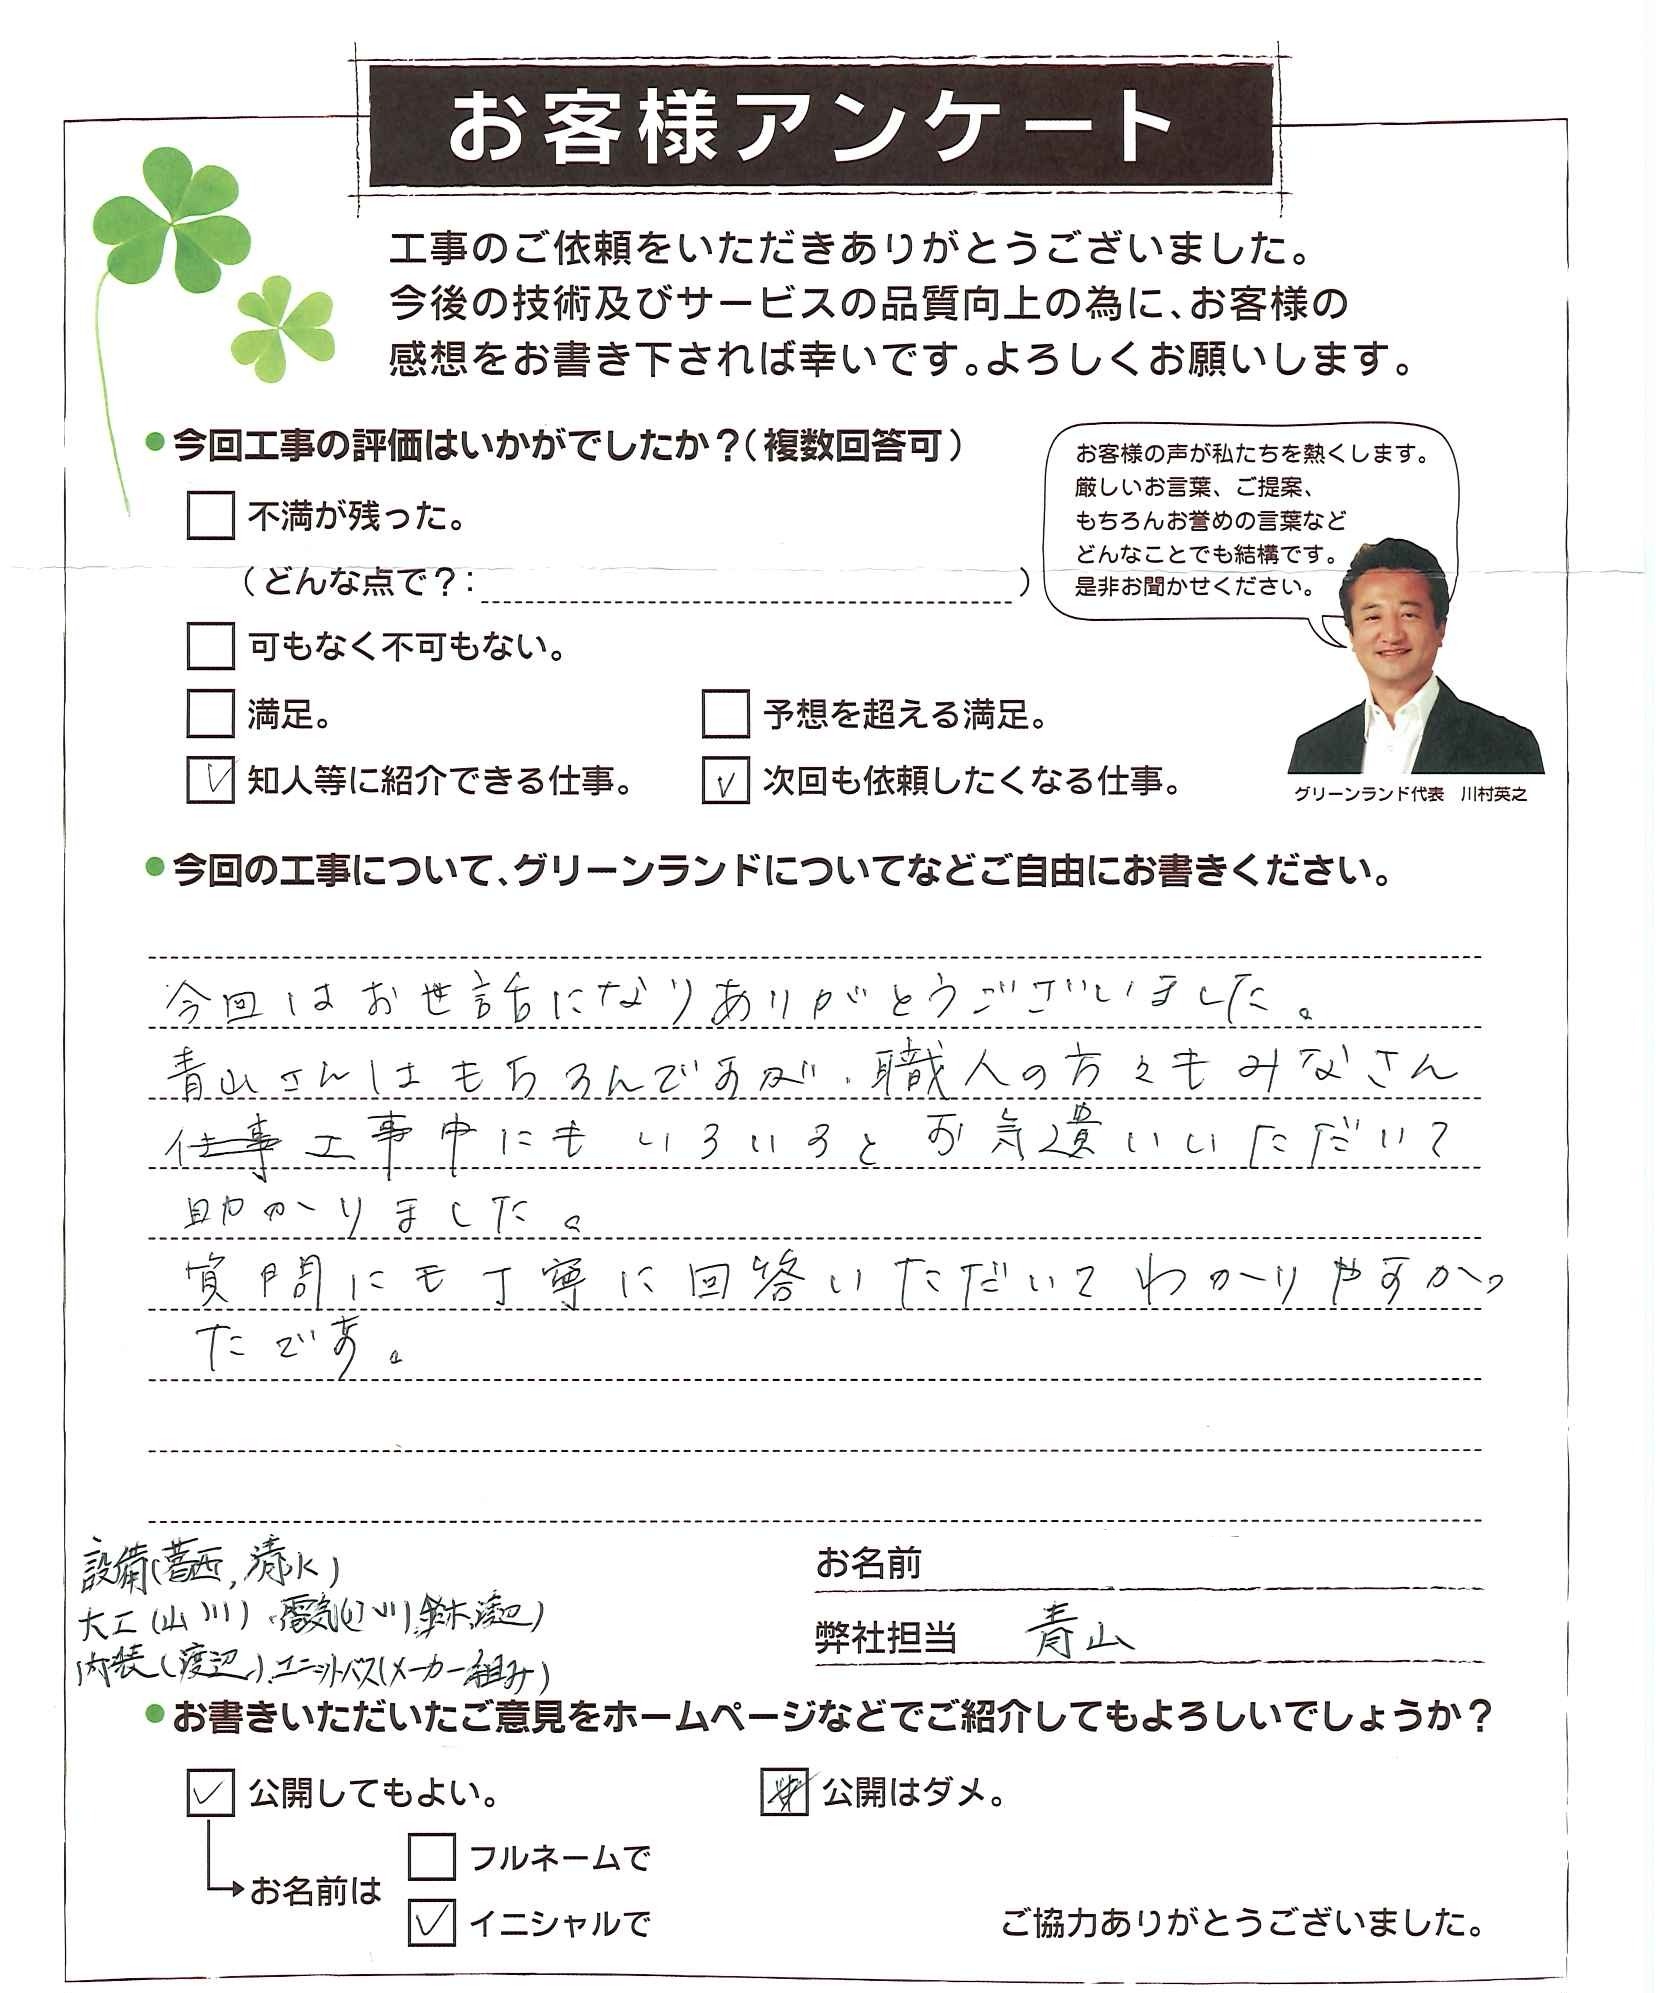 お客様アンケート
工事のご依頼をいただきありがとうございました。
今後の技術及びサービスの品質向上の為に、お客様の
感想をお書き下されば幸いです。よろしくお願いします。
今回工事の評価はいかがでしたか？（複数回答可）
不満が残った。
（どんな点で？：　　　）
可もなく不可もない。
満足。
予想を超える満足。
知人等に紹介できる仕事。
次回も依頼したくなる仕事。
お客様の声が私たちを熱くします。
厳しいお言葉、ご提案、
もちろんお誉めの言葉など
どんなことでも結構です。
是非お聞かせください。
グリーンランド代表　川村英之
今回の工事について、グリーンランドについてなどご自由にお書きください。
今回はお世話になりありがとうございました。
青山さんはもちろんですが、職人の方々もみなさん
仕事工事中にもいろいろとお気遣いいただいて
助かりました。
質問にも丁寧に回答いただいてわかりやすかっ
たです。
設備(葛西,清水)
大工(山川)、電気(   鈴木,渡辺)
内装(渡辺)、ユニットバス(メーカー組み)
お名前
弊社担当　青山
お書きいただいたご意見をホームページなどでご紹介してもよろしいでしょうか？
公開してもよい。
公開はダメ。
お名前は
フルネームで
イニシャルで
ご協力ありがとうございました。